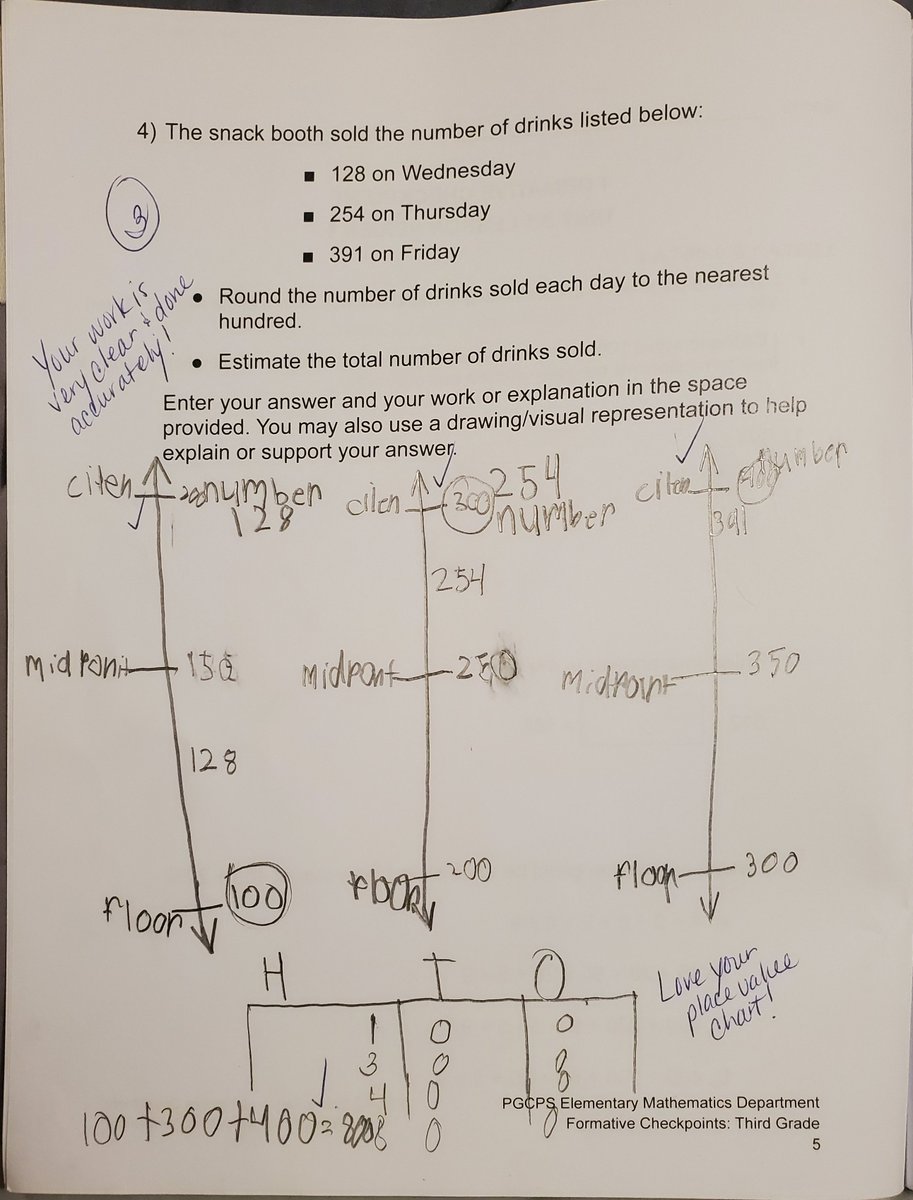 4) The snack booth sold the number of drinks listed below:
▪ 128 on Wednesday
▪ 254 on Thursday
▪ 391 on Friday
3
• Round the number of drinks sold each day to the nearest
hundred.
• Estimate the total number of drinks sold.
Your work is
very clear & done
accurately!
Enter your answer and your work or explanation in the space
provided. You may also use a drawing/visual representation to help
explain or support your answer.
citen 200 number
128
citen 300 254
number
254
citen 400 number
391
midpont 150
midpont 250
midpoint 350
128
floor 100
floor 200
floor 300
Love your
place value
chart!
H T O
1 0 0
3 0 0
4 0 0
100+300+400=800 8 0 0
PGCPS Elementary Mathematics Department
Formative Checkpoints: Third Grade
5